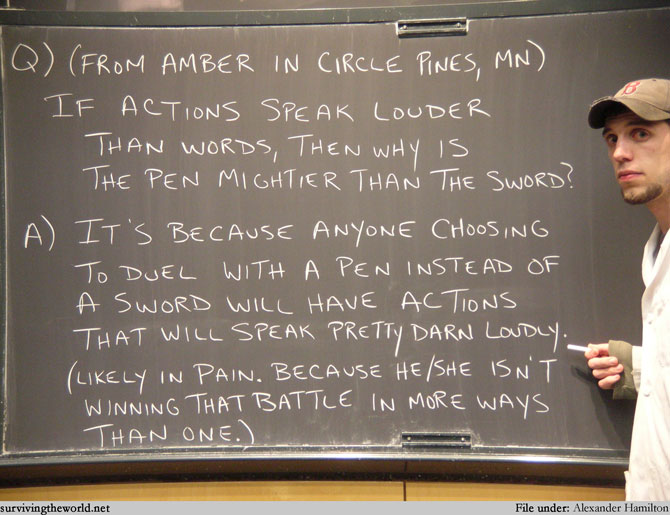 Q) (FROM AMBER IN CIRCLE PINES, MN)
IF ACTIONS SPEAK LOUDER
THAN WORDS, THEN WHY IS
THE PEN MIGHTIER THAN THE SWORD?
A) IT'S BECAUSE ANYONE CHOOSING
TO DUEL WITH A PEN INSTEAD OF
A SWORD WILL HAVE ACTIONS
THAT WILL SPEAK PRETTY DARN LOUDLY.
(LIKELY IN PAIN. BECAUSE HE/SHE ISN'T
WINNING THAT BATTLE IN MORE WAYS
THAN ONE.)
B
survivingtheworld.net
File under: Alexander Hamilton